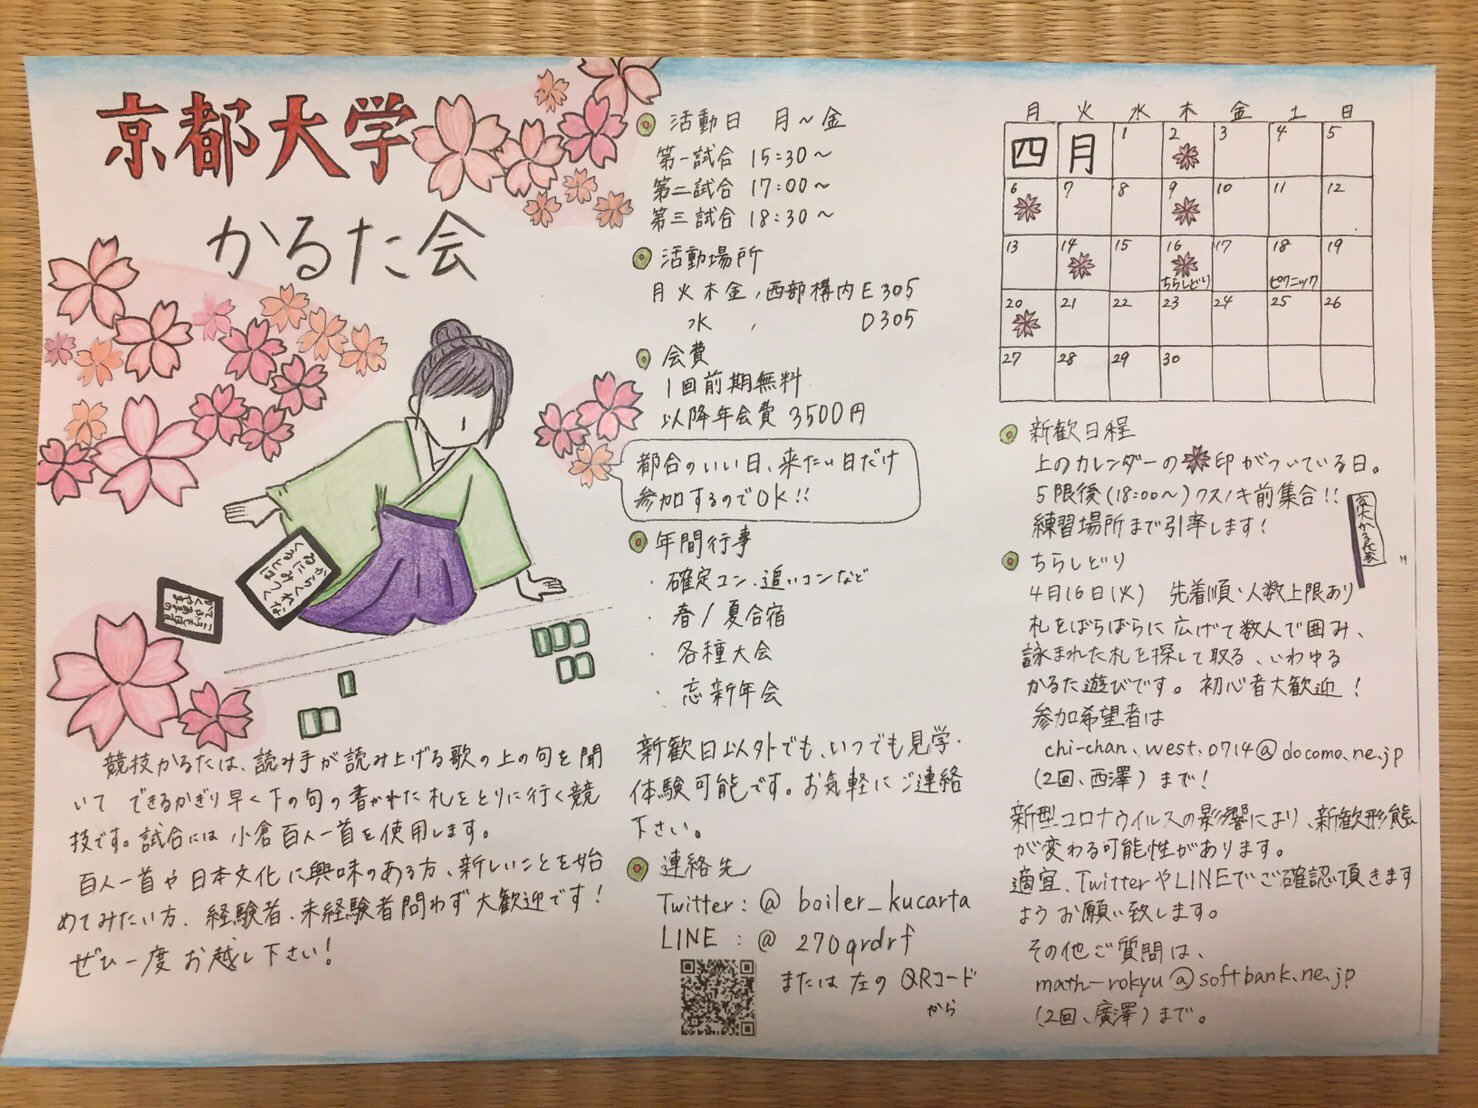 京都大学
かるた会
からくれ
なゐにみつくく
るとは
競技かるたは、読み手が読み上げる歌の上の句を聞
いて できるかぎり早く下の句の書かれた札をとりに行く競
技です。試合には 小倉百人一首を使用します。
百人一首や日本文化に興味のある方、新しいことを始
めてみたい方、経験者、未経験者問わず大歓迎です！
ぜひ一度 お越し下さい！
活動日 月～金
第一試合 15:30～
第二試合 17:00～
第三試合 18:30～
活動場所
月火木金,西部構内E305
水 , D305
会費
1回前期無料
以降年会費 3500円
都合のいい日、来たい日だけ
参加するのでOK!!
年間行事
・確定コン・追いコンなど
・春/夏合宿
・各種大会
・忘新年会
新歓日以外でも、いつでも見学・
体験可能です。お気軽にご連絡
下さい。
連絡先
Twitter: @ boiler_kucarta
LINE : @ 270qrdrf
または左のQRコード
から
月 火 水 木 金 土 日
四 月 1 2 3 4 5
6 7 8 9 10 11 12
13 14 15 16 17 18 19
ちらしどり ピクニック
20 21 22 23 24 25 26
27 28 29 30
新歓日程
上のカレンダーの印がついている日。
5限後(18:00～)クスノキ前集合!!
練習場所まで引率します!
京大かるた会
ちらしどり
4月16日(火) 先着順・人数上限あり
札をばらばらに広げて数人で囲み、
詠まれた札を探して取る、いわゆる
かるた遊びです。初心者大歓迎！
参加希望者は
chi-chan.west.0714@docomo.ne.jp
(2回、西澤)まで!
新型コロナウイルスの影響により、新歓形態
が変わる可能性があります。
適宜、TwitterやLINEでご確認頂きます
ようお願い致します。
その他ご質問は、
math-rokyu@softbank.ne.jp
(2回、廣澤)まで。